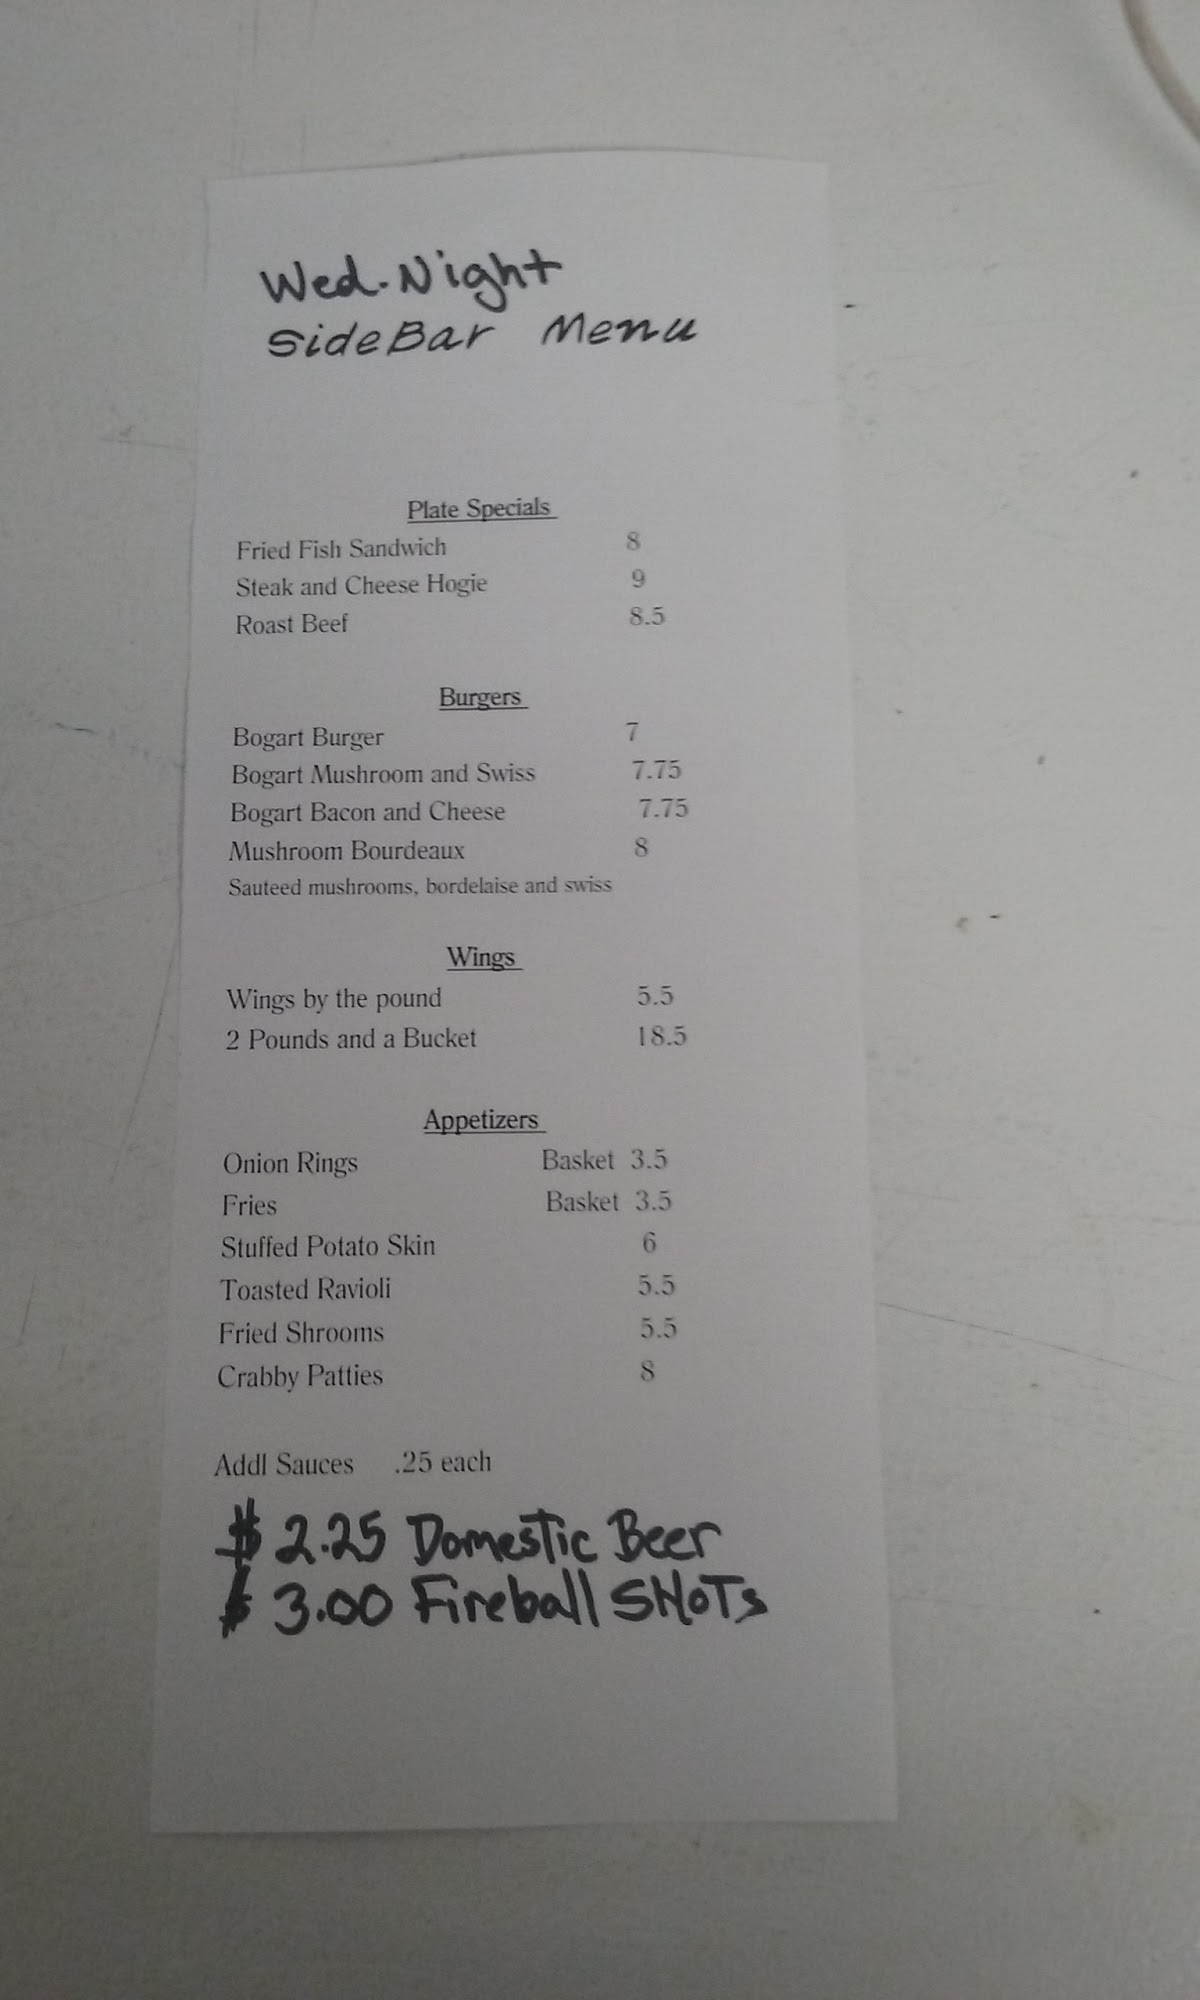 Wed. Night
SideBar Menu
Plate Specials
Fried Fish Sandwich 8
Steak and Cheese Hogie 9
Roast Beef 8.5
Burgers
Bogart Burger 7
Bogart Mushroom and Swiss 7.75
Bogart Bacon and Cheese 7.75
Mushroom Bourdeaux 8
Sauteed mushrooms, bordelaise and swiss
Wings
Wings by the pound 5.5
2 Pounds and a Bucket 18.5
Appetizers
Onion Rings Basket 3.5
Fries Basket 3.5
Stuffed Potato Skin 6
Toasted Ravioli 5.5
Fried Shrooms 5.5
Crabby Patties 8
Addl Sauces .25 each
$ 2.25 Domestic Beer
$ 3.00 Fireball SHoTs